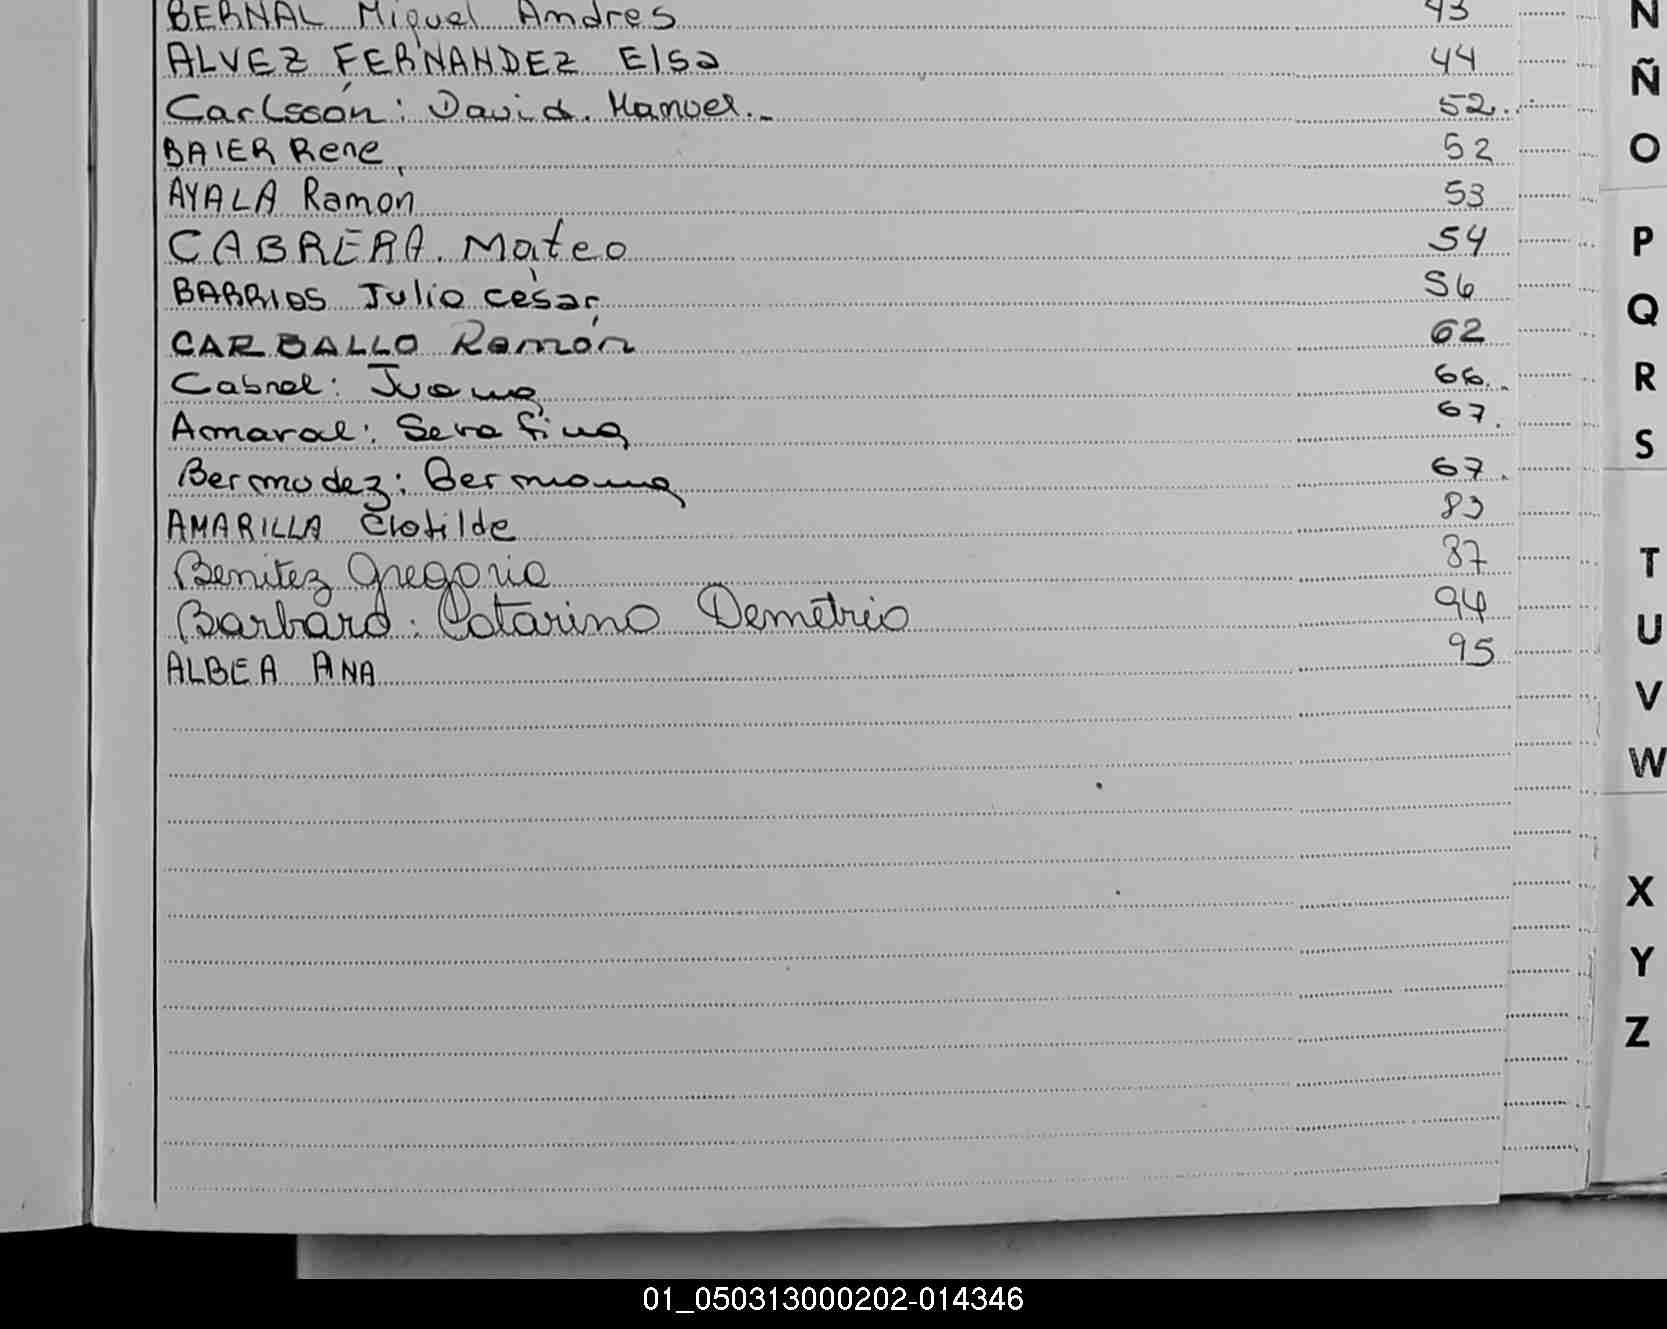 BERNAL Miguel Andres 43
ALVEZ FERNANDEZ Elsa 44
Carlsson: David. Manuel.- 52.
BAIER Rene 52
AYALA Ramón 53
CABRERA. Mateo 54
BARRIOS Julio césar 56
CARBALLO Ramón 62
Cabral: Juana 66.
Amaral: Serafina 67.
Bermudez: Germana 67.
AMARILLA Clotilde 83
Benitez Gregorio 87
Barbaro: Catarino Demetrio 94
ALBEA ANA 95
N
Ñ
O
P
Q
R
S
T
U
V
W
X
Y
Z
01_050313000202-014346